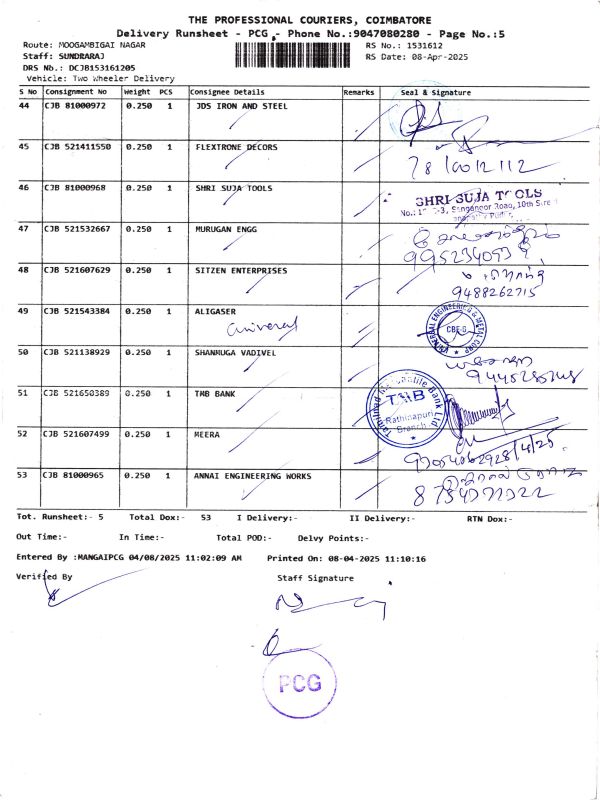 THE PROFESSIONAL COURIERS, COIMBATORE
Delivery Runsheet - PCG - Phone No.:9047080280 - Page No.:5
Route: MOOGAMBIGAI NAGAR RS No.: 1531612
Staff: SUNDRARAJ RS Date: 08-Apr-2025
DRS Nb.: DCJB153161205
Vehicle: Two Wheeler Delivery
S No Consignment No Weight PCS Consignee Details Remarks Seal & Signature
44 CJB 81000972 0.250 1 JDS IRON AND STEEL
45 CJB 521411550 0.250 1 FLEXTRONE DECORS
46 CJB 81000968 0.250 1 SHRI SUJA TOOLS SHRI SUJA TOOLS
47 CJB 521532667 0.250 1 MURUGAN ENGG
48 CJB 521607629 0.250 1 SITZEN ENTERPRISES
9488262715
49 CJB 521543384 0.250 1 ALIGASER
CBE-6
50 CJB 521138929 0.250 1 SHANMUGA VADIVEL
51 CJB 521650389 0.250 1 TMB BANK
Tamilnad Mercantile Bank Ltd.
TMB
Rathinapuri
Branch
52 CJB 521607499 0.250 1 MEERA
53 CJB 81000965 0.250 1 ANNAI ENGINEERING WORKS
Tot. Runsheet:- 5 Total Dox:- 53 I Delivery:- II Delivery:- RTN Dox:-
Out Time:- In Time:- Total POD:- Delvy Points:-
Entered By :MANGAIPCG 04/08/2025 11:02:09 AM Printed On: 08-04-2025 11:10:16
Verified By Staff Signature
PCG